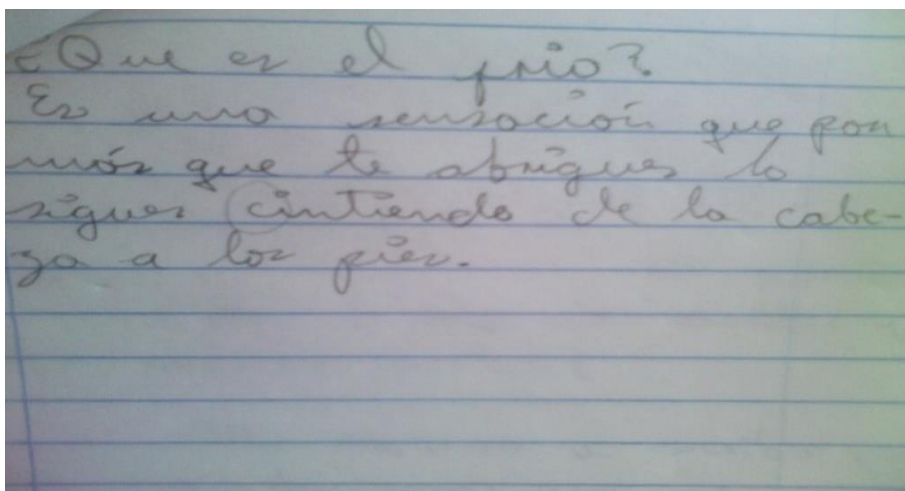 ¿Que es el frio?
Es una sensación que por
más que te abrigues lo
sigues cintiendo de la cabe-
za a los pies.